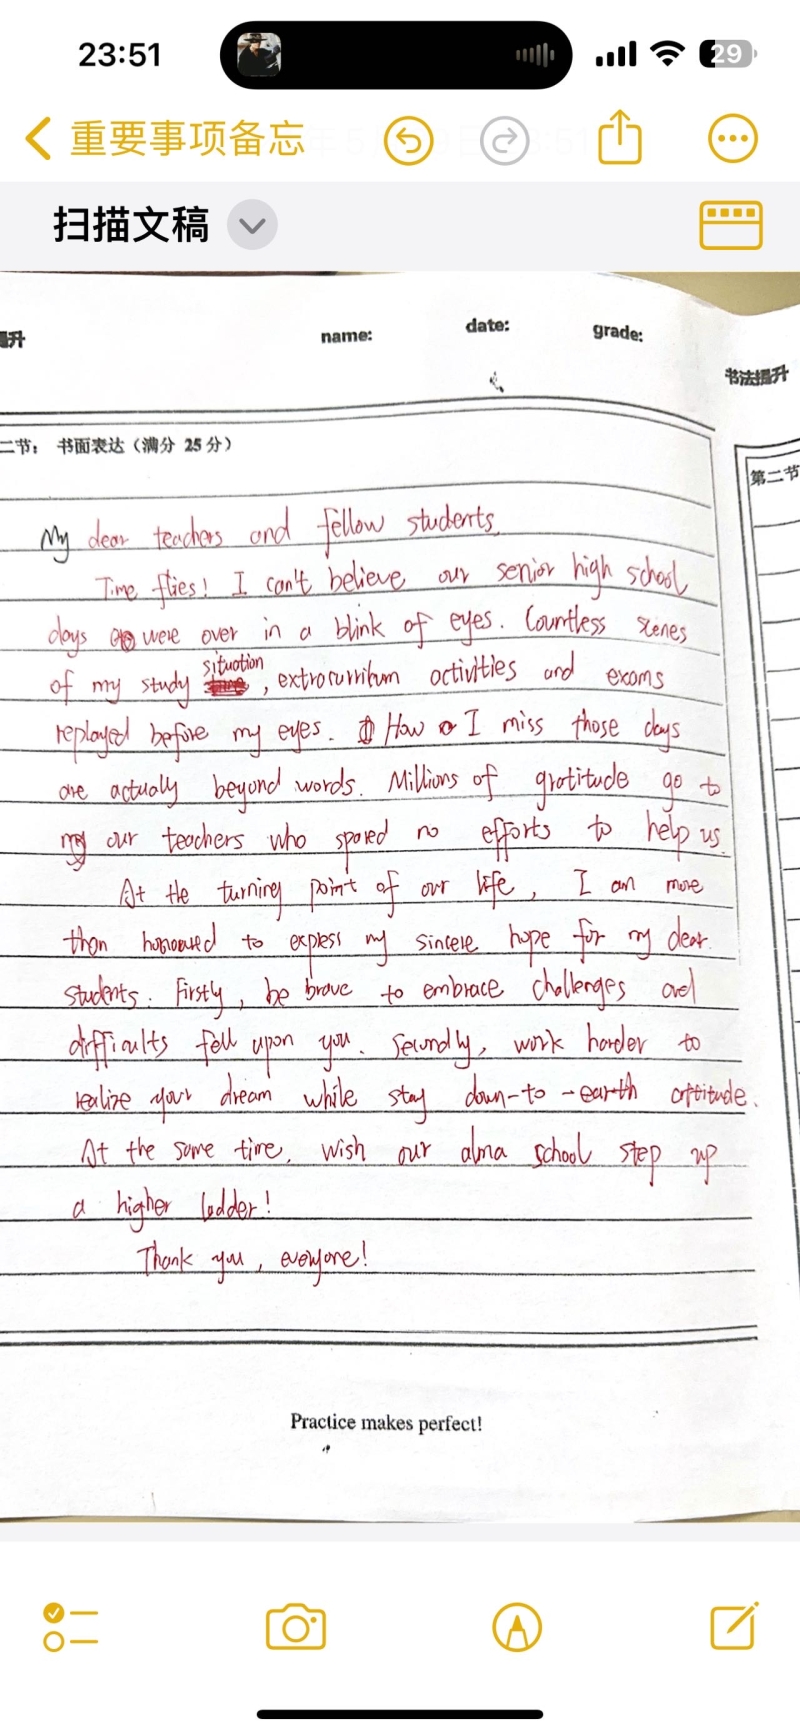 23:51
29
重要事项备忘
扫描文稿
提升
name:
date:
grade:
书法提升
二节： 书面表达（满分 25 分）
第二节
My dear teachers and fellow students,
Time flies! I can't believe our senior high school
days were over in a blink of eyes. Countless scenes
of my study situation, extracurriculum activities and exams
replayed before my eyes. How I miss those days
are actually beyond words. Millions of gratitude go to
our teachers who spared no efforts to help us.
At the turning point of our life, I am more
than honoured to express my sincere hope for my dear
students. Firstly, be brave to embrace challenges and
difficults fell upon you. Secondly, work harder to
realize your dream while stay down-to-earth attitude.
At the same time, wish our alma school step up
a higher ladder!
Thank you, everyone!
Practice makes perfect!